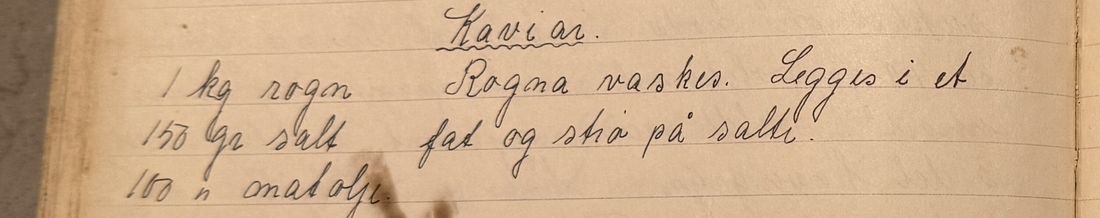 Kaviar.
1 kg rogn Rogna vaskes. Legges i et
150 gr salt fat og strø på salte.
100 " matolje.